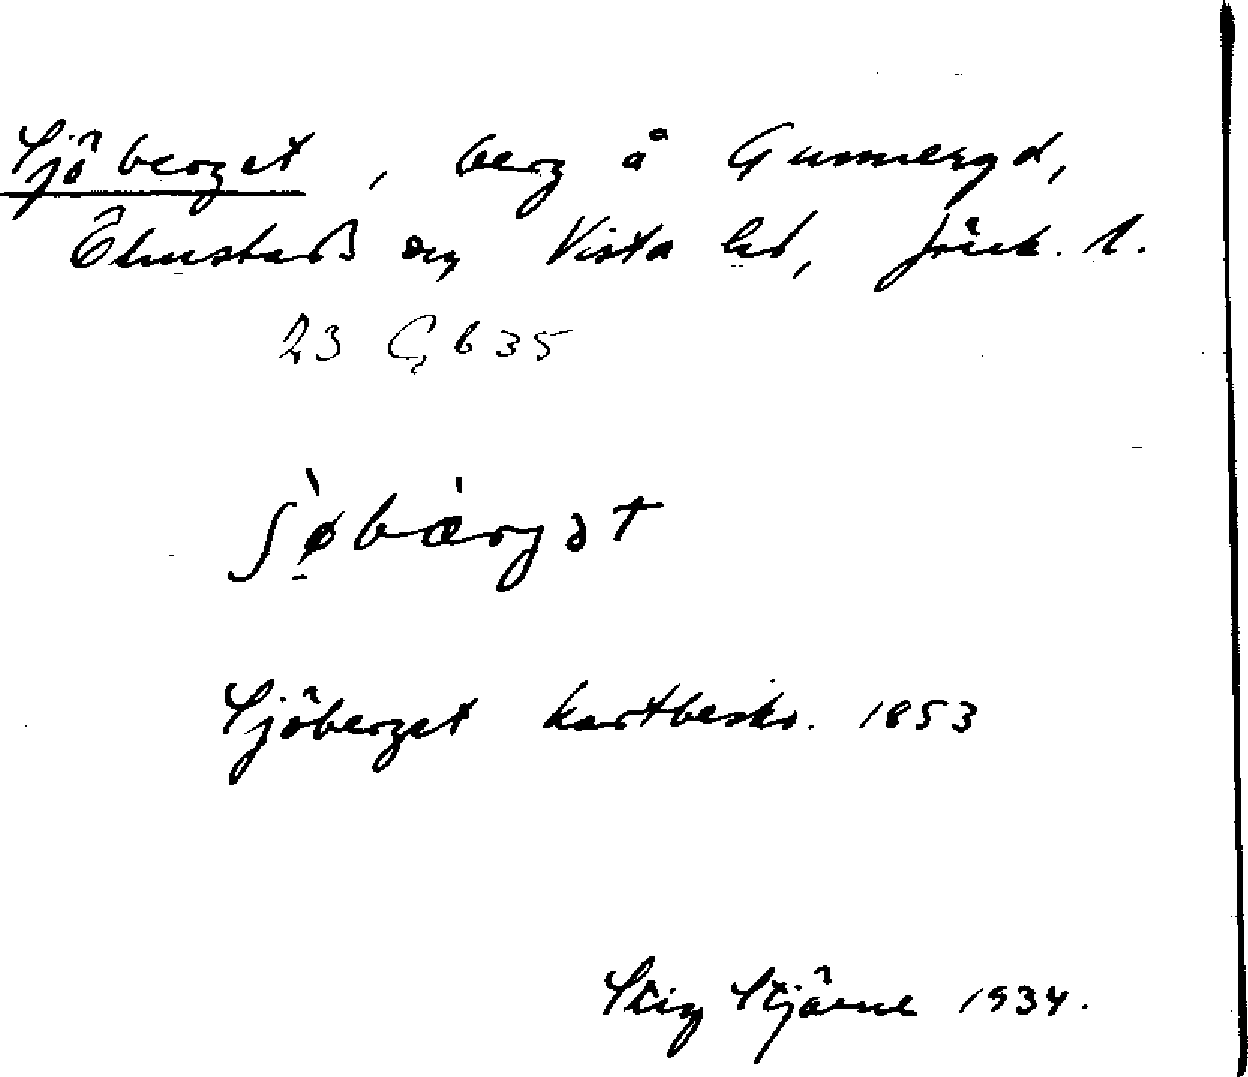 Sjöberget, berg å Gunneryd,
Ölmstads sn, Vista hd, Jönk. l.
23 Ç b 35
ʃø̀bærgət
Sjöberget kartbeskr. 1853
Stig Stjärne 1934.